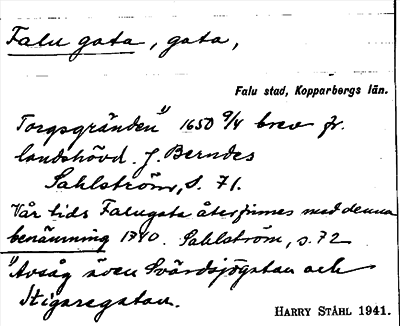 Falu gata, gata,
Falu stad, Kopparbergs län.
Torgsgränden¹⁾ 1650 9/4 brev fr.
landshövd. J. Berndes
Sahlström, s. 71.
Vår tids Falugata återfinnes med denna
benämning 1740. Sahlström, s. 72
¹⁾ Avsåg även Svärdsjögatan och
Stigaregatan.
HARRY STÅHL 1941.